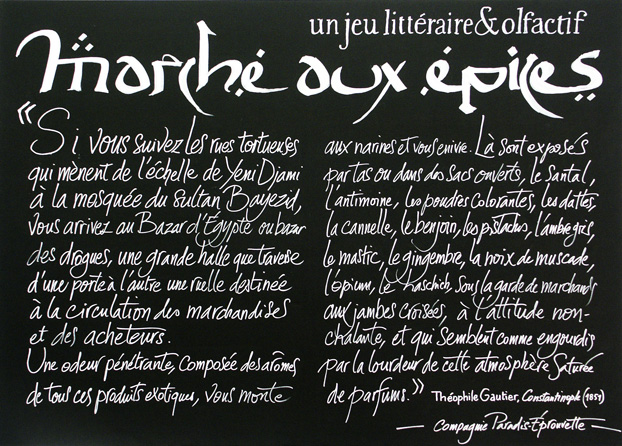 un jeu littéraire & olfactif
marché aux épices
« Si vous suivez les rues tortueuses
qui mènent de l'échelle de Yeni Djami
à la mosquée du Sultan Bayezid,
vous arrivez au Bazar d'Égypte ou bazar
des drogues, une grande halle que traverse
d'une porte à l'autre une ruelle destinée
à la circulation des marchandises
et des acheteurs.
Une odeur pénétrante, composée des arômes
de tous ces produits exotiques, vous monte
aux narines et vous enivre. Là sont exposés
par tas ou dans des sacs ouverts, le santal,
l'antimoine, les poudres colorantes, les dattes,
la cannelle, le benjoin, les pistaches, l'ambre gris,
le mastic, le gingembre, la noix de muscade,
l'opium, le haschich, sous la garde de marchands
aux jambes croisées, à l'attitude non-
chalante, et qui semblent comme engourdis
par la lourdeur de cette atmosphère saturée
de parfums. » Théophile Gautier, Constantinople (1853)
— Compagnie Paradis-Éprouvette —